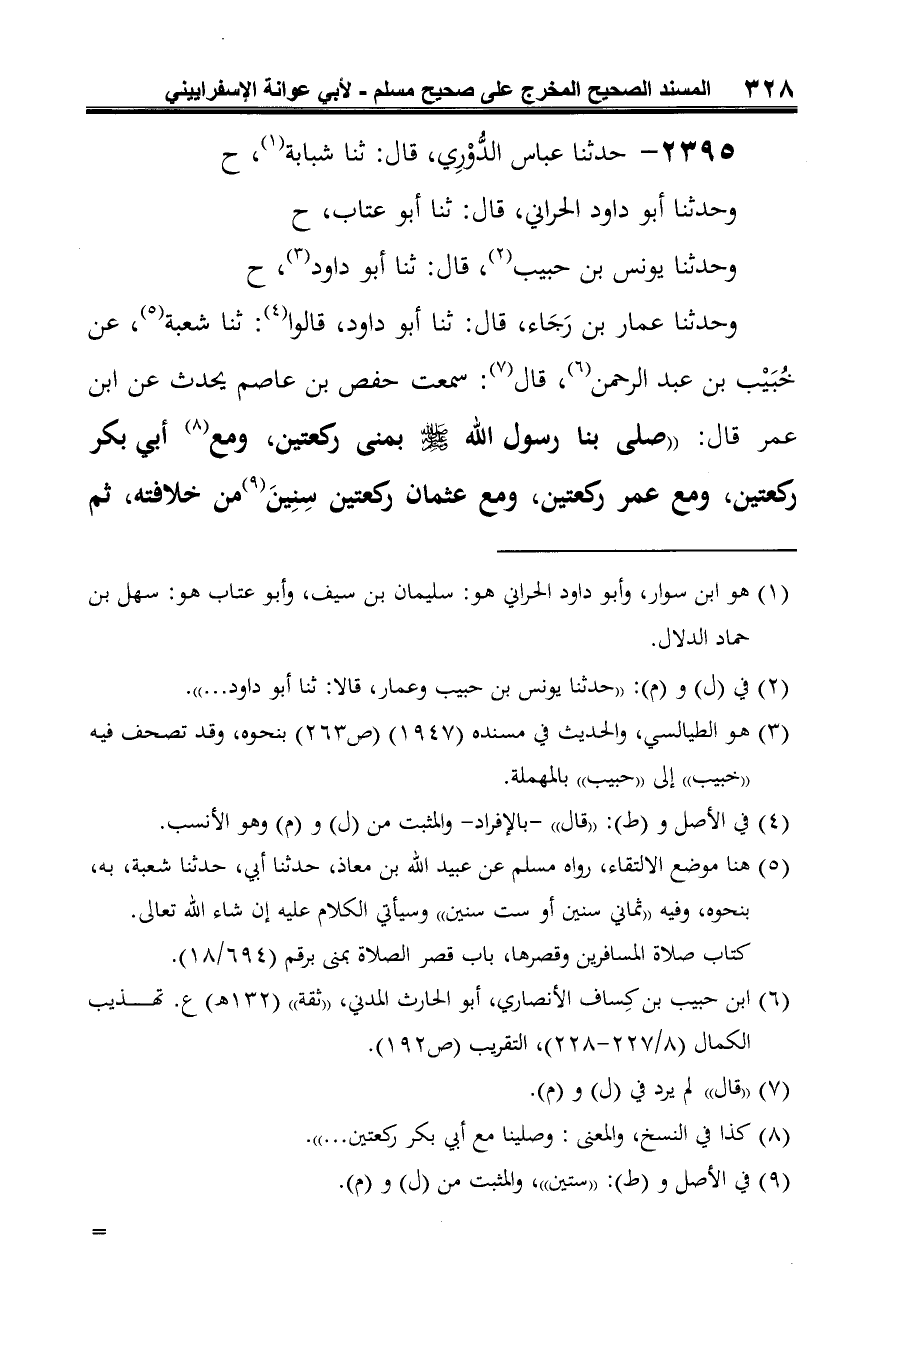 ٣٢٨ المسند الصحيح المخرج على صحيح مسلم - لأبي عوانة الإسفراييني
٢٣٩٥- حدثنا عباس الدُّوْرِي، قال: ثنا شبابة(١)، ح
وحدثنا أبو داود الحراني، قال: ثنا أبو عتاب، ح
وحدثنا يونس بن حبيب(٢)، قال: ثنا أبو داود(٣)، ح
وحدثنا عمار بن رَجَاء، قال: ثنا أبو داود، قالوا(٤): ثنا شعبة(٥)، عن
خُبَيْب بن عبد الرحمن(٦)، قال(٧): سمعت حفص بن عاصم يحدث عن ابن
عمر قال: ((صلى بنا رسول الله ﷺ بمنى ركعتين، ومع(٨) أبي بكر
ركعتين، ومع عمر ركعتين، ومع عثمان ركعتين سِنِينَ(٩)من خلافته، ثم
(١) هو ابن سوار، وأبو داود الحراني هو: سليمان بن سيف، وأبو عتاب هو: سهل بن
حماد الدلال.
(٢) في (ل) و (م): ((حدثنا يونس بن حبيب وعمار، قالا: ثنا أبو داود...)).
(٣) هو الطيالسي، والحديث في مسنده (١٩٤٧) (ص٢٦٣) بنحوه، وقد تصحف فيه
((خبيب)) إلى ((حبيب)) بالمهملة.
(٤) في الأصل و (ط): ((قال)) -بالإفراد- والمثبت من (ل) و (م) وهو الأنسب.
(٥) هنا موضع الالتقاء، رواه مسلم عن عبيد الله بن معاذ، حدثنا أبي، حدثنا شعبة، به،
بنحوه، وفيه ((ثماني سنين أو ست سنين)) وسيأتي الكلام عليه إن شاء الله تعالى.
كتاب صلاة المسافرين وقصرها، باب قصر الصلاة بمنى برقم (١٨/٦٩٤).
(٦) ابن حبيب بن كِساف الأنصاري، أبو الحارث المدني، ((ثقة)) (١٣٢هـ) ع. تهـــذيب
الكمال (٢٢٧/٨-٢٢٨)، التقريب (ص١٩٢).
(٧) ((قال)) لم يرد في (ل) و (م).
(٨) كذا في النسخ، والمعنى : وصلينا مع أبي بكر ركعتين...)).
(٩) في الأصل و (ط): ((ستين))، والمثبت من (ل) و (م).
=